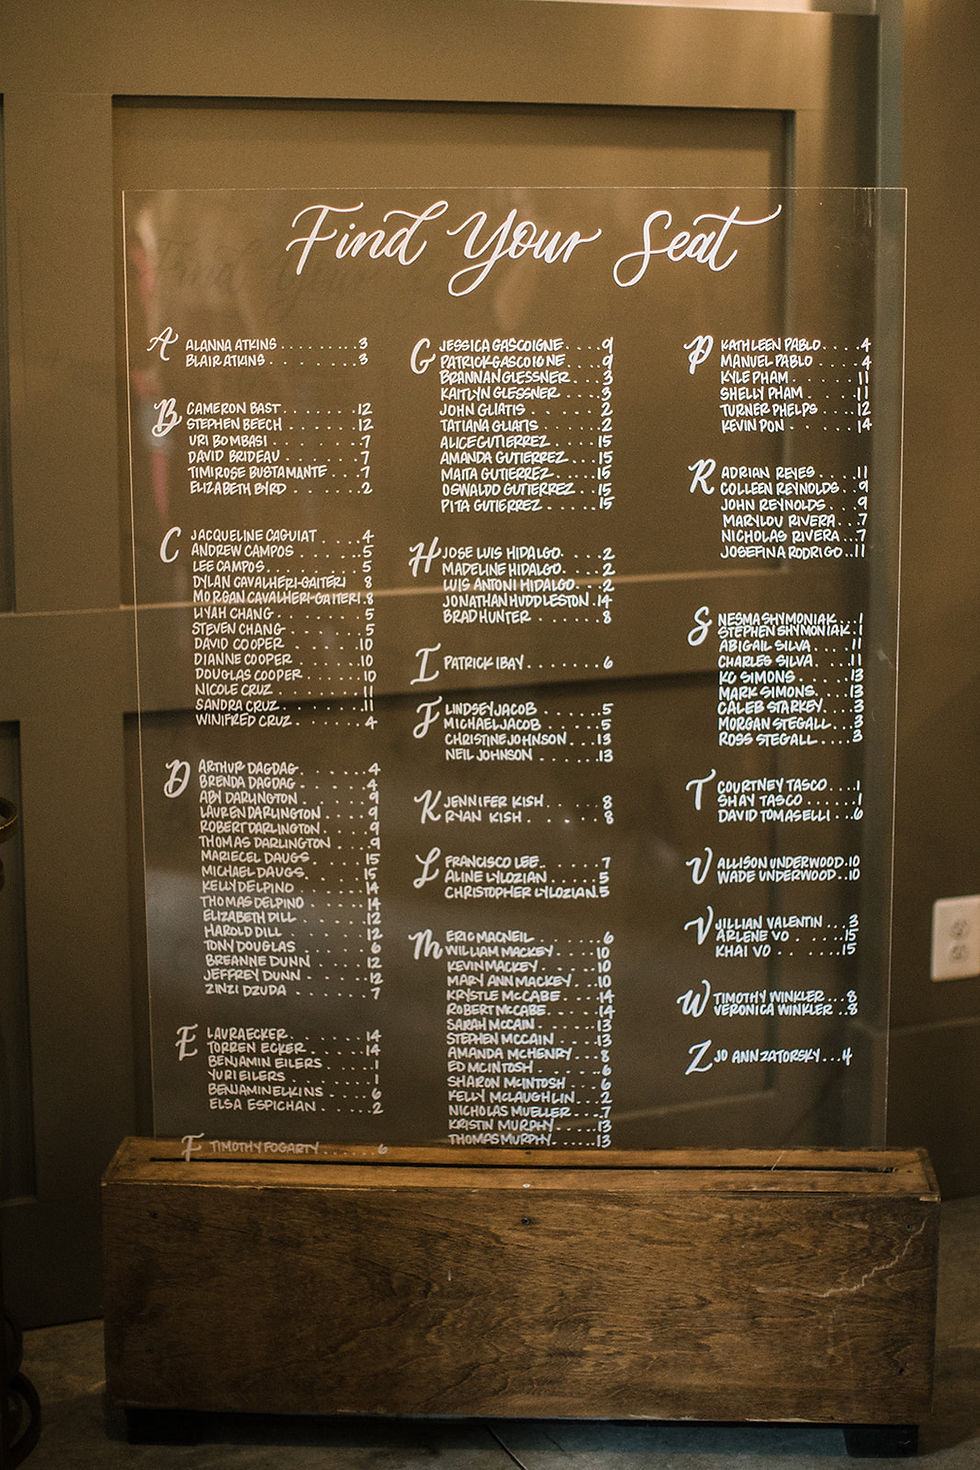 Find Your Seat
A
ALANNA ATKINS ........ 3
BLAIR ATKINS ......... 3
B
CAMERON BAST ....... 12
STEPHEN BEECH ...... 12
URI BOMBASI ........ 7
DAVID BRIDEAU ...... 7
TIMIROSE BUSTAMANTE .. 7
ELIZABETH BYRD ..... 2
C
JACQUELINE CAGUIAT .... 4
ANDREW CAMPOS ...... 5
LEE CAMPOS ........ 5
DYLAN CAVALHERI-GAITERI 8
MORGAN CAVALHERI-GAITERI . 8
LIYAH CHANG ....... 5
STEVEN CHANG ...... 5
DAVID COOPER ...... 10
DIANNE COOPER ..... 10
DOUGLAS COOPER .... 10
NICOLE CRUZ ....... 11
SANDRA CRUZ ....... 11
WINIFRED CRUZ ..... 4
D
ARTHUR DAGDAG ..... 4
BRENDA DAGDAG ..... 4
ABY DARLINGTON .... 9
LAUREN DARLINGTON ... 9
ROBERT DARLINGTON ... 9
THOMAS DARLINGTON ... 9
MARIECEL DAUGS .... 15
MICHAEL DAUGS ..... 15
KELLY DELPINO ..... 14
THOMAS DELPINO .... 14
ELIZABETH DILL .... 12
HAROLD DILL ....... 12
TONY DOUGLAS ...... 6
BREANNE DUNN ...... 12
JEFFREY DUNN ...... 12
ZINZI DZUDA ....... 7
E
LAURA ECKER ....... 14
TORREN ECKER ...... 14
BENJAMIN EILERS ... 1
YURI EILERS ....... 1
BENJAMIN ELKINS ... 6
ELSA ESPICHAN ..... 2
F
TIMOTHY FOGARTY ...... 6
G
JESSICA GASCOIGNE .... 9
PATRICK GASCOIGNE .... 9
BRANNAN GLESSNER ... 3
KAITLYN GLESSNER .... 3
JOHN GLIATIS ....... 2
TATIANA GLIATIS .... 2
ALICE GUTIERREZ .... 15
AMANDA GUTIERREZ ... 15
MAITA GUTIERREZ .... 15
OSWALDO GUTIERREZ .. 15
PITA GUTIERREZ ..... 15
H
JOSE LUIS HIDALGO .... 2
MADELINE HIDALGO .... 2
LUIS ANTONI HIDALGO ... 2
JONATHAN HUDDLESTON . 14
BRAD HUNTER ....... 8
I
PATRICK IBAY ....... 6
J
LINDSEY JACOB ...... 5
MICHAEL JACOB ...... 5
CHRISTINE JOHNSON ... 13
NEIL JOHNSON ...... 13
K
JENNIFER KISH ..... 8
RYAN KISH ........ 8
L
FRANCISCO LEE ...... 7
ALINE LYLOZIAN ..... 5
CHRISTOPHER LYLOZIAN . 5
M
ERIC MACNEIL ...... 6
WILLIAM MACKEY .... 10
KEVIN MACKEY ...... 10
MARY ANN MACKEY ... 10
KRYSTLE MCCABE .... 14
ROBERT MCCABE ..... 14
SARAH MCCAIN ...... 13
STEPHEN MCCAIN .... 13
AMANDA MCHENRY ... 8
ED MCINTOSH ....... 6
SHARON MCINTOSH ... 6
KELLY MCLAUGHLIN ... 2
NICHOLAS MUELLER ... 7
KRISTIN MURPHY .... 13
THOMAS MURPHY ..... 13
P
KATHLEEN PABLO .... 4
MANUEL PABLO ..... 4
KYLE PHAM ....... 11
SHELLY PHAM ..... 11
TURNER PHELPS ... 12
KEVIN PON ...... 14
R
ADRIAN REYES ... 11
COLLEEN REYNOLDS .. 9
JOHN REYNOLDS ... 9
MARYLOU RIVERA ... 7
NICHOLAS RIVERA .. 7
JOSEFINA RODRIGO .. 11
S
NESMA SHYMONIAK ... 1
STEPHEN SHYMONIAK . 1
ABIGAIL SILVA .... 11
CHARLES SILVA .... 11
KC SIMONS ...... 13
MARK SIMONS .... 13
CALEB STARKEY ... 3
MORGAN STEGALL ... 3
ROSS STEGALL .... 3
T
COURTNEY TASCO .... 1
SHAY TASCO ...... 1
DAVID TOMASELLI ... 6
U
ALLISON UNDERWOOD . 10
WADE UNDERWOOD .. 10
V
JILLIAN VALENTIN ... 3
ARLENE VO ..... 15
KHAI VO ...... 15
W
TIMOTHY WINKLER ... 8
VERONICA WINKLER .. 8
Z
JO ANN ZATORSKY ... 4